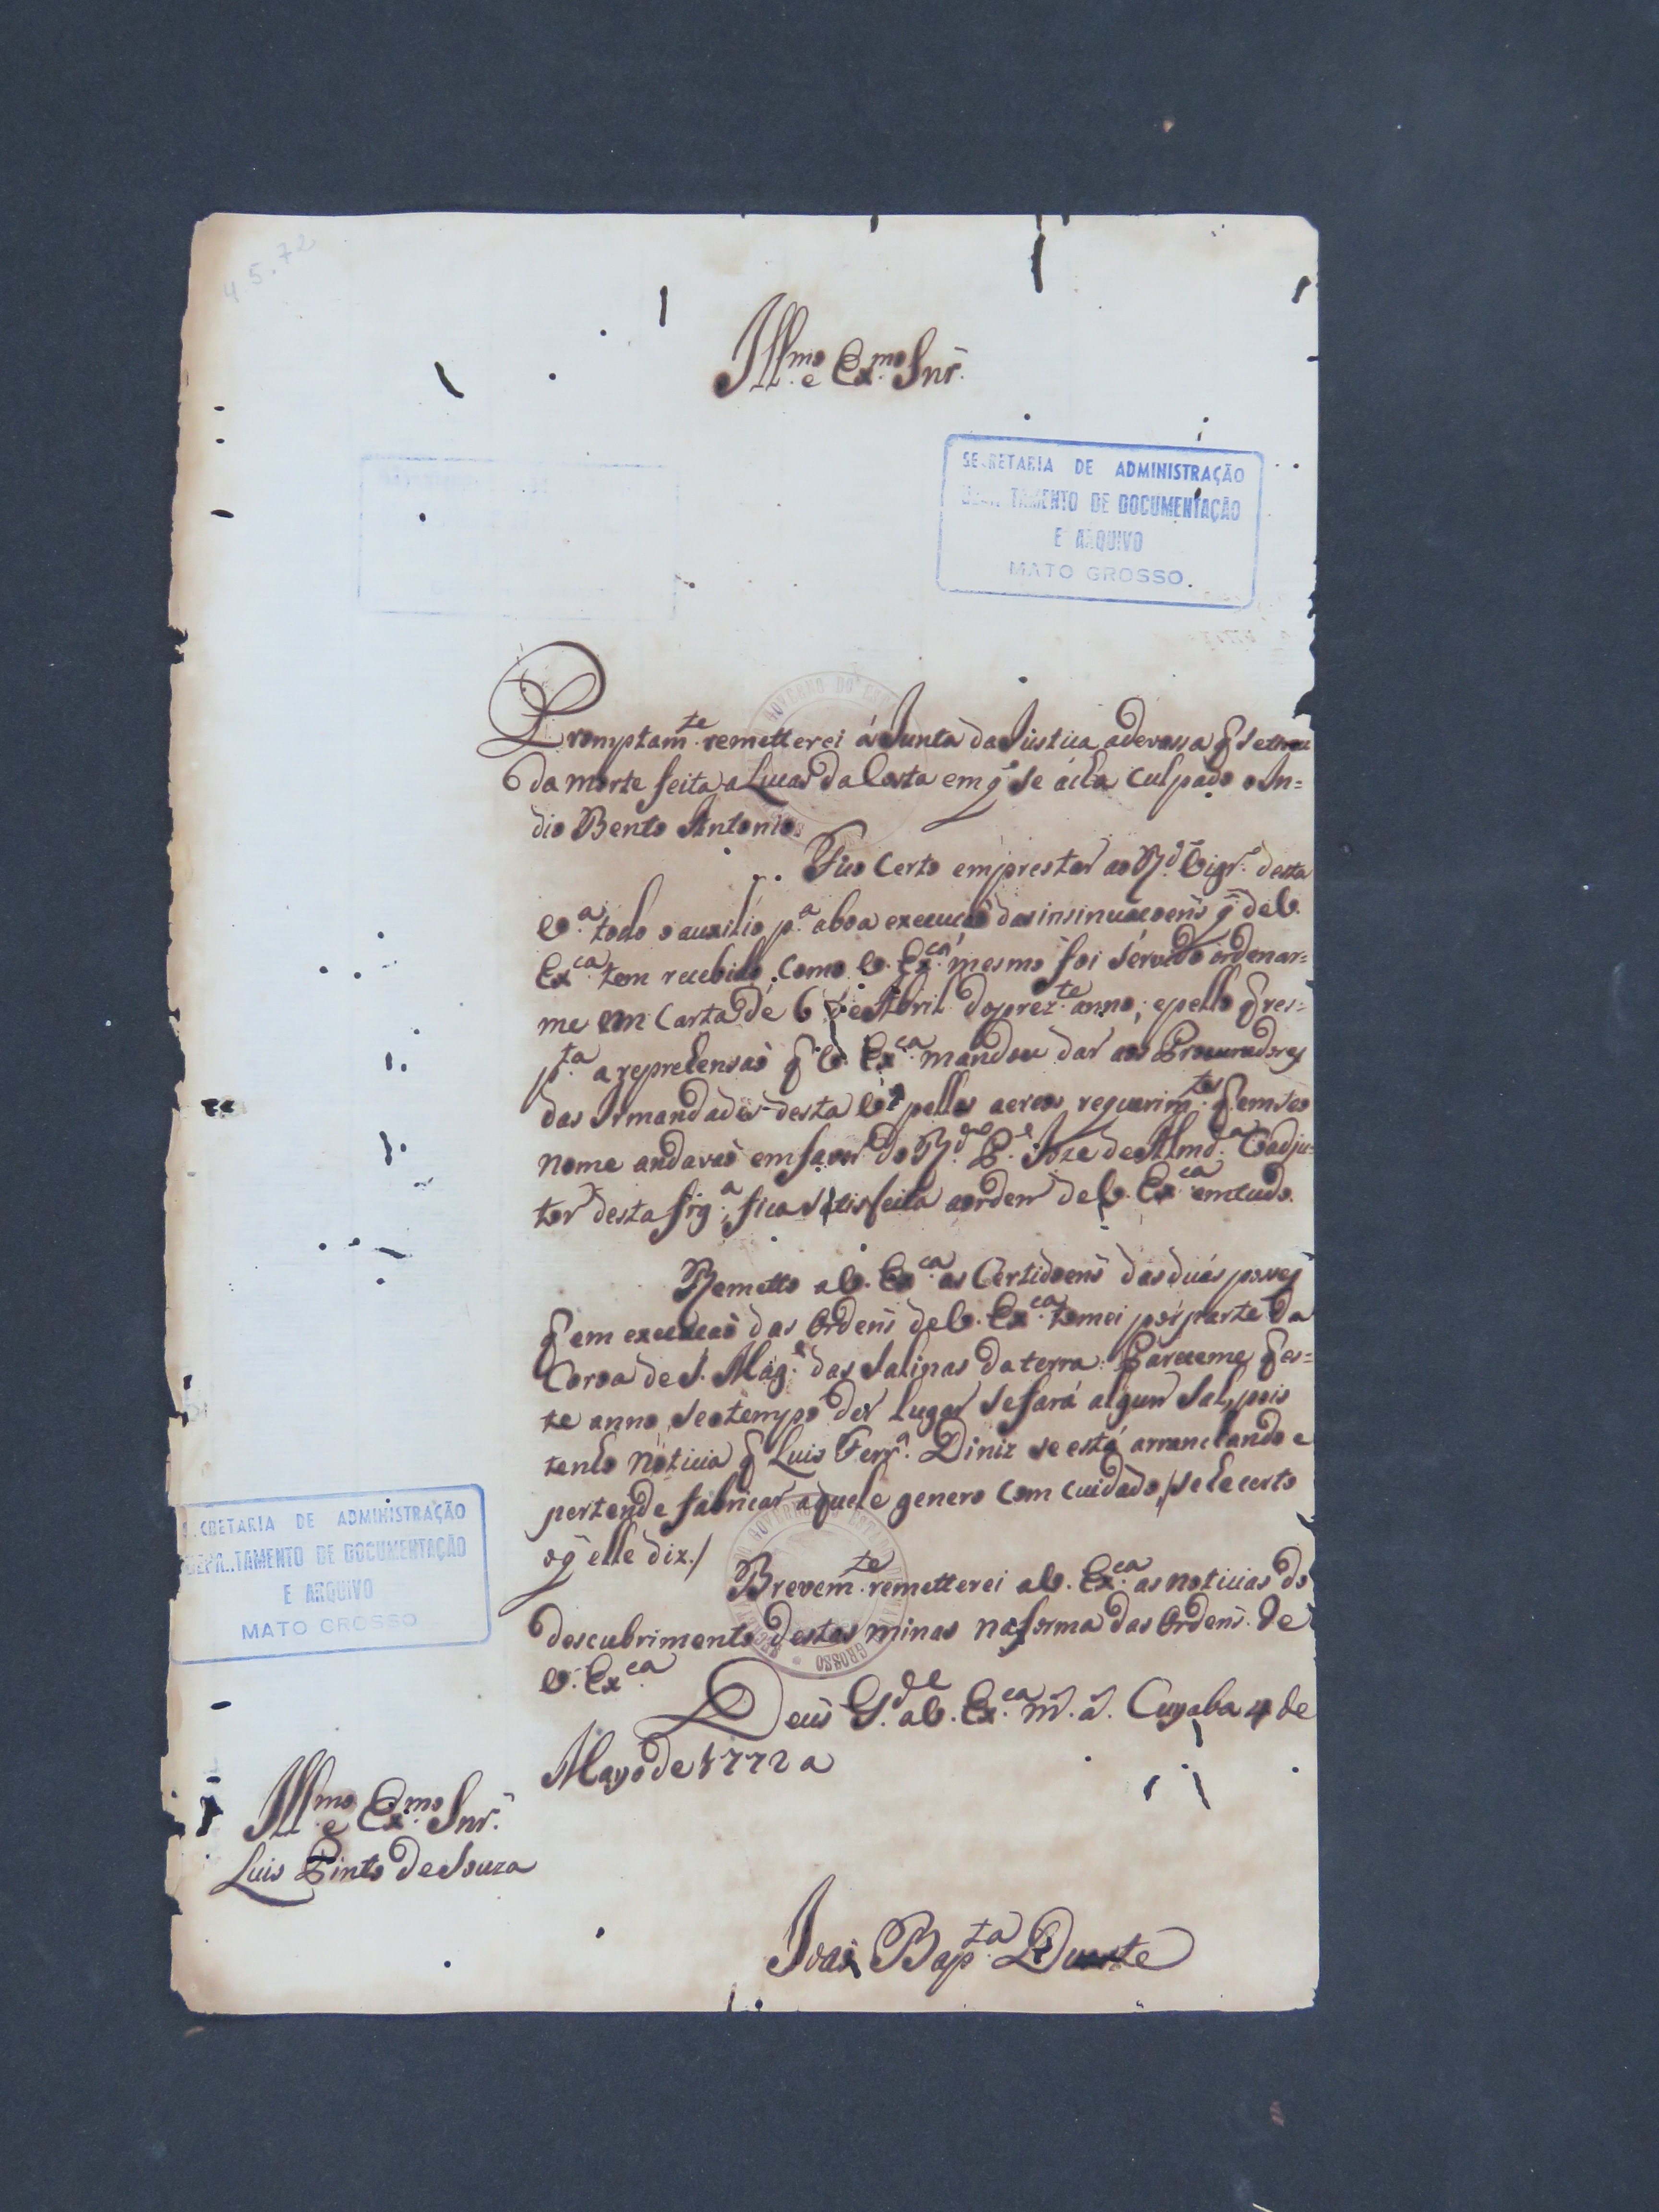 4.5.72
Ill.mo e Ex.mo Snr.
SECRETARIA DE ADMINISTRAÇÃO
DEPARTAMENTO DE DOCUMENTAÇÃO
E ARQUIVO
MATO GROSSO.
Promptam.te remetterei á Junta da Justica adevassa q̃ Se
da morte feita a Lucas da Costa em q̃ Se ácha culpado o In=
dio Bento Antonio.
Fico Certo em prestar ao R.do Vigr.o desta
V.a todo o auxilio p.a aboa execução das insinuacoens q̃ de V.
Ex.ca tem recebido, como V. Ex.ca mesmo foi Servido ordenar=
me em Carta de 6 de Abril do prez.te anno; epello q̃ res=
p.ta a reprehensaõ q̃ V. Ex.ca mandou dar aos Procuradores
das Irmandades desta V.a pellos requerim.tos q̃ em seo
nome andavaõ em favor do R.do P.e Joze de Almd.a Coadju=
tor desta frg.a, fica Satisfeita aordem de V. Ex.ca emtudo.
Remetto a V. Ex.ca as Certidoens das duas posses
q̃ em execucaõ das Ordens de V. Ex.ca tomei por parte da
Coroa de S. Mag.e das Salinas da terra: Pareceme q̃ es=
te anno, Seotempo der lugar Sefará algum Sal, pois
tenho noticia q̃ Luis Ferr.a Diniz se está arranchando e
pertende fabricar aquele genero Com cuidado, /se he certo
oq̃ elle diz./
Brevem.te remetterei a V. Ex.ca as noticias do
descubrimento destas minas na forma das Ordens de
V. Ex.ca
Deus G.de a V. Ex.ca m.s a.s Cuyaba 4 de
Mayo de 1772 a
SECRETARIA DE ADMINISTRAÇÃO
DEPARTAMENTO DE DOCUMENTAÇÃO
E ARQUIVO
MATO GROSSO
Ill.mo e Ex.mo Snr.
Luis Pinto de Souza
Joaõ Bap.ta Duarte